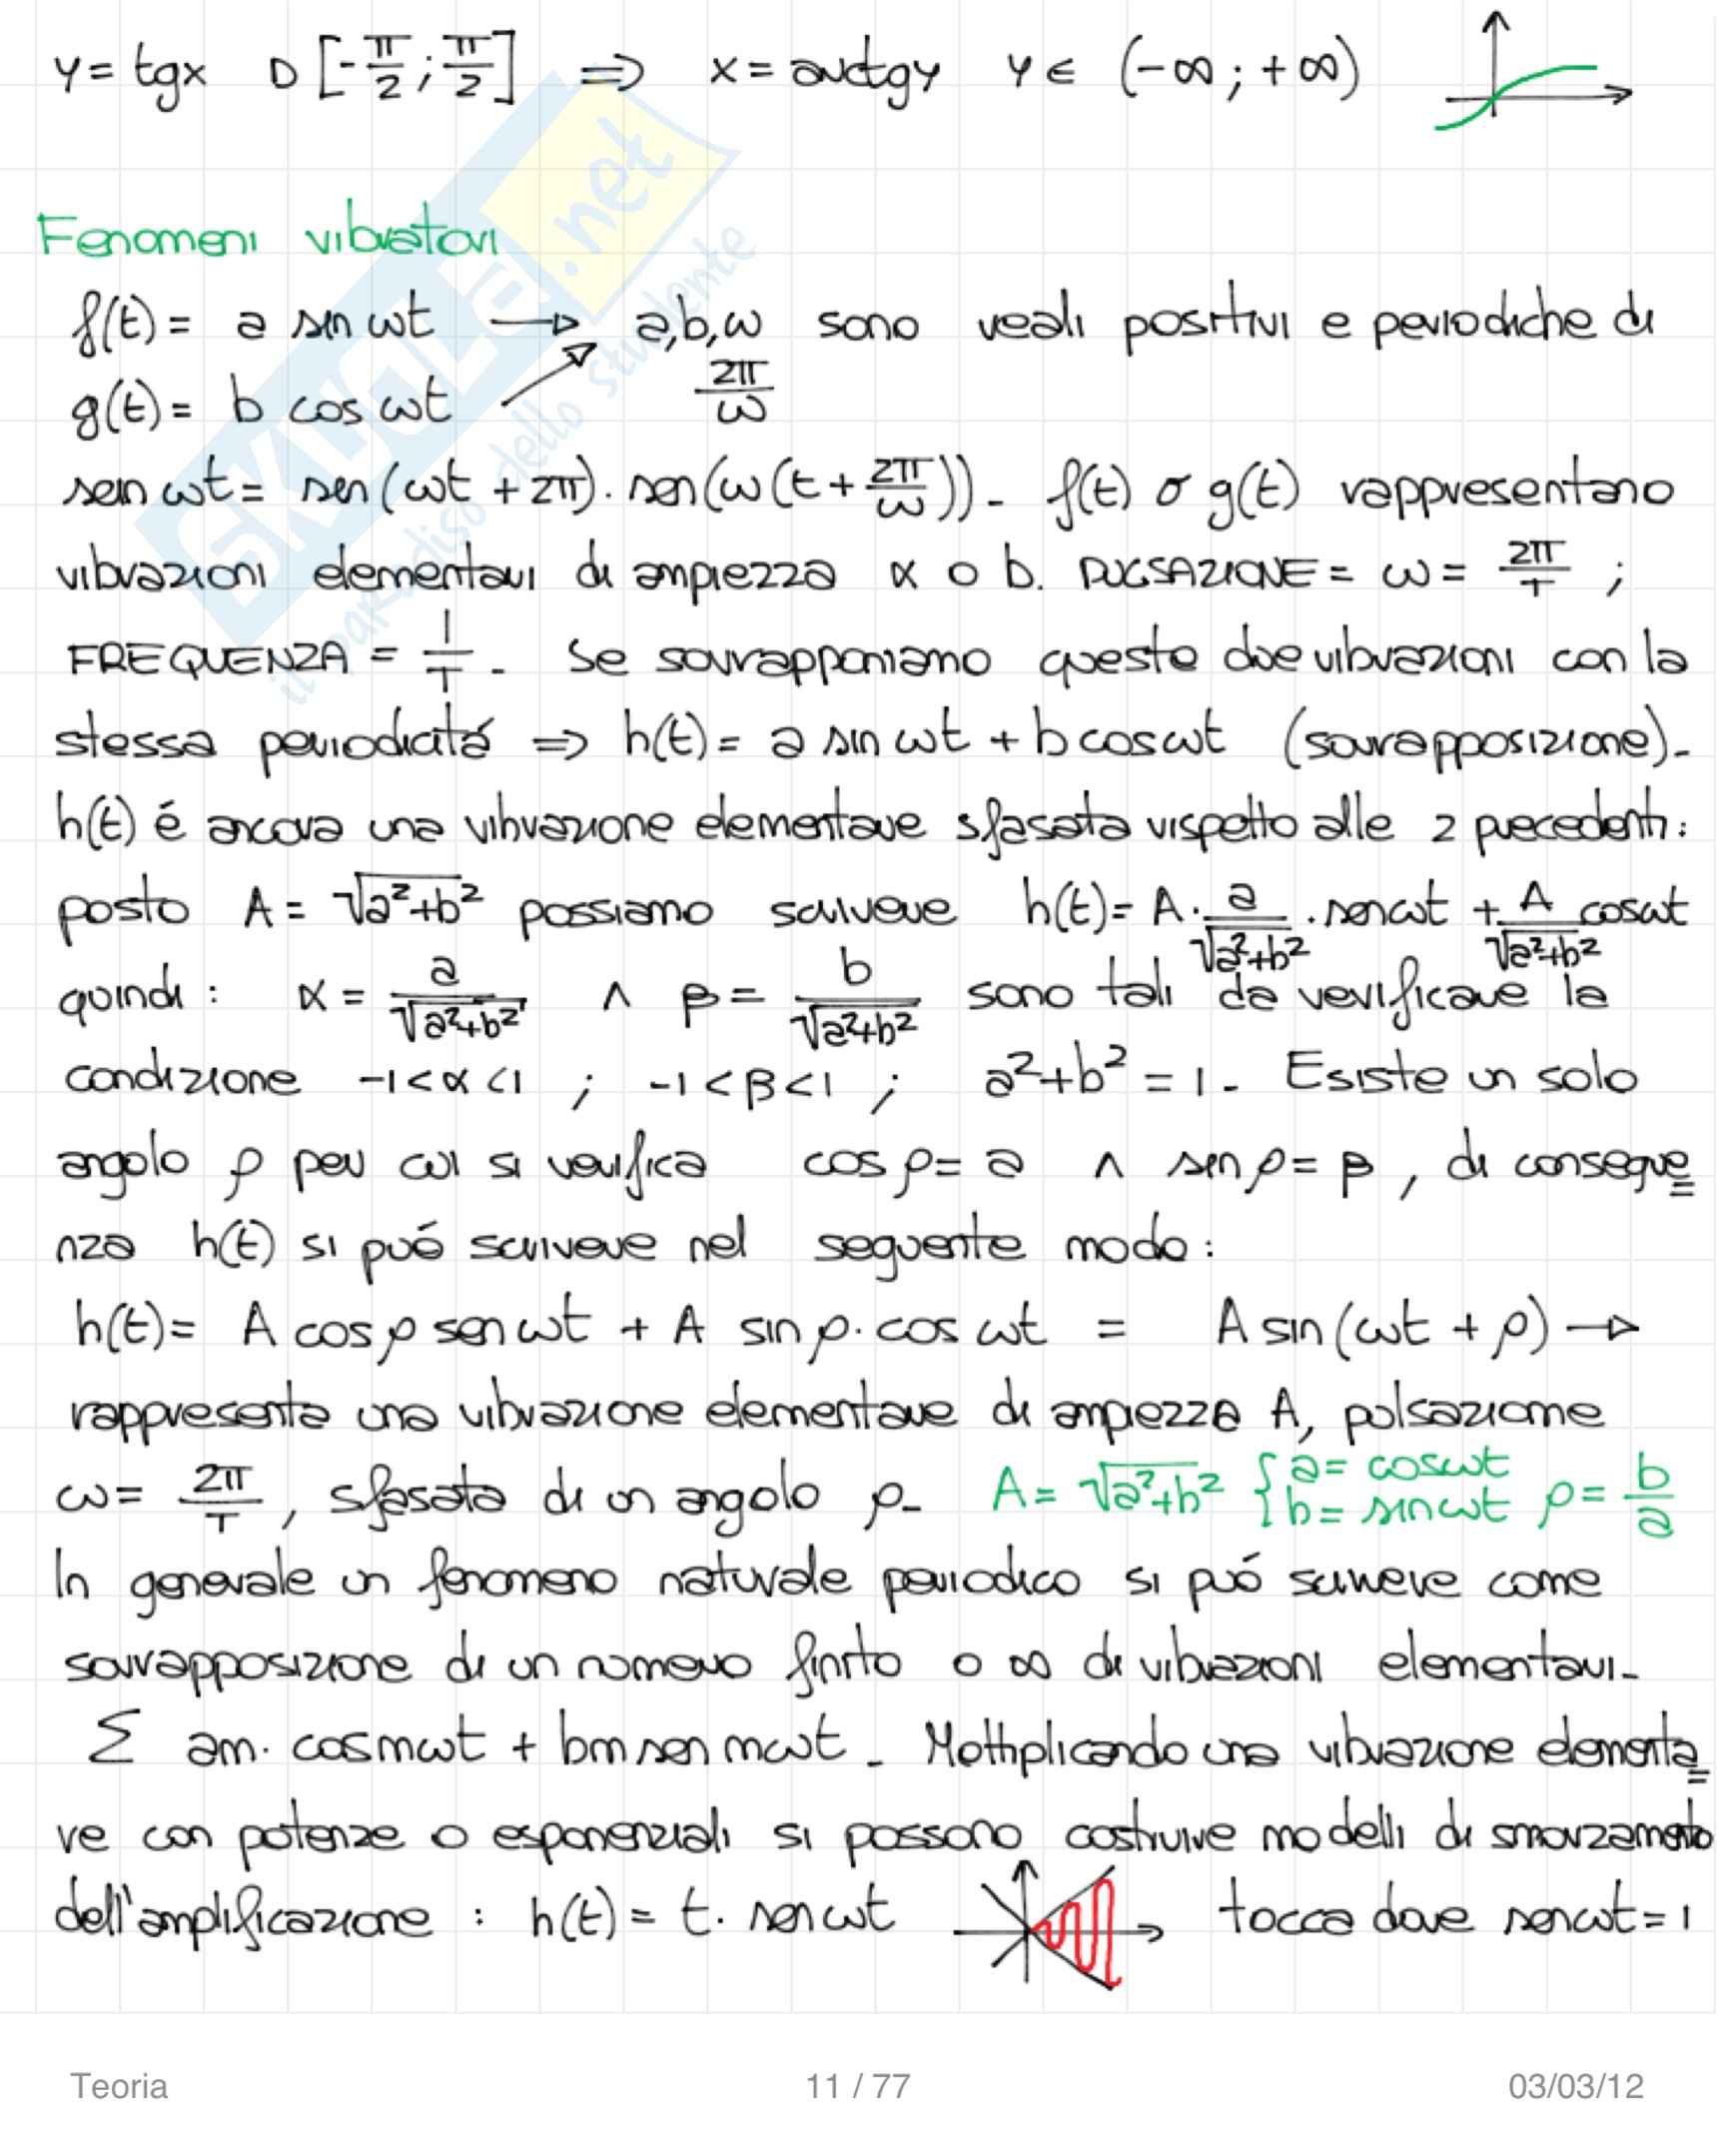 y = tgx D [-π/2 ; π/2] ⇒ x = arctgy y ∈ (-∞ ; +∞)
Fenomeni vibratori
f(t) = a sin ωt → a, b, ω sono reali positivi e periodiche di
g(t) = b cos ωt 2π/ω
sen ωt = sen(ωt + 2π) . sen(ω(t + 2π/ω)) - f(t) o g(t) rappresentano
vibrazioni elementari di ampiezza α o b. PUGSAZIONE = ω = 2π/T ;
FREQUENZA = 1/T - Se sovrapponiamo queste due vibrazioni con la
stessa periodicitá ⇒ h(t) = a sin ωt + b cos ωt (sovrapposizione) -
h(t) é ancora una vibrazione elementare sfasata rispetto alle 2 precedenti :
posto A = √a²+b² possiamo scrivere h(t) = A · a/√a²+b² · sen ωt + A/√a²+b² cos ωt
quindi : α = a/√a²+b² ∧ β = b/√a²+b² sono tali da verificare la
condizione -1 < α < 1 ; -1 < β < 1 ; a² + b² = 1 - Esiste un solo
angolo ρ per cui si verifica cos ρ = a ∧ sen ρ = β , di consegue=
nza h(t) si puó scrivere nel seguente modo :
h(t) = A cos ρ sen ωt + A sin ρ · cos ωt = A sin (ωt + ρ) →
rappresenta una vibrazione elementare di ampiezza A, pulsazione
ω = 2π/T , sfasata di un angolo ρ - A = √a²+b² { a = cos ωt b = sin ωt ρ = b/a
In generale un fenomeno naturale periodico si puó scrivere come
sovrapposizione di un numero finito o ∞ di vibrazioni elementari -
Σ am · cosmωt + bm sen mωt - Moltiplicando una vibrazione elementa=
re con potenze o esponenziali si possono costruire modelli di smorzamento
dell'amplificazione : h(t) = t · sen ωt tocca dove sen ωt = 1
SKUOLA.net
il paradiso dello studente
Teoria 11 / 77 03/03/12